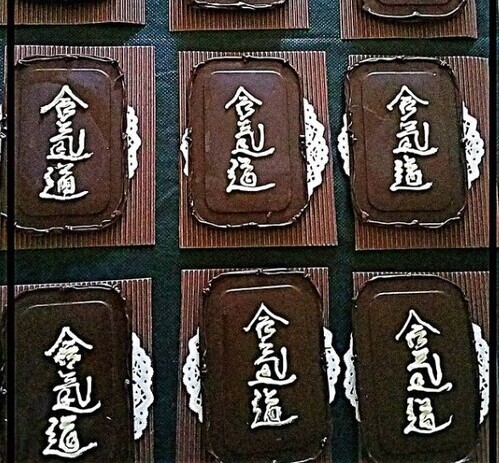 合氣道
合氣道
合氣道
合氣道
合氣道
合氣道